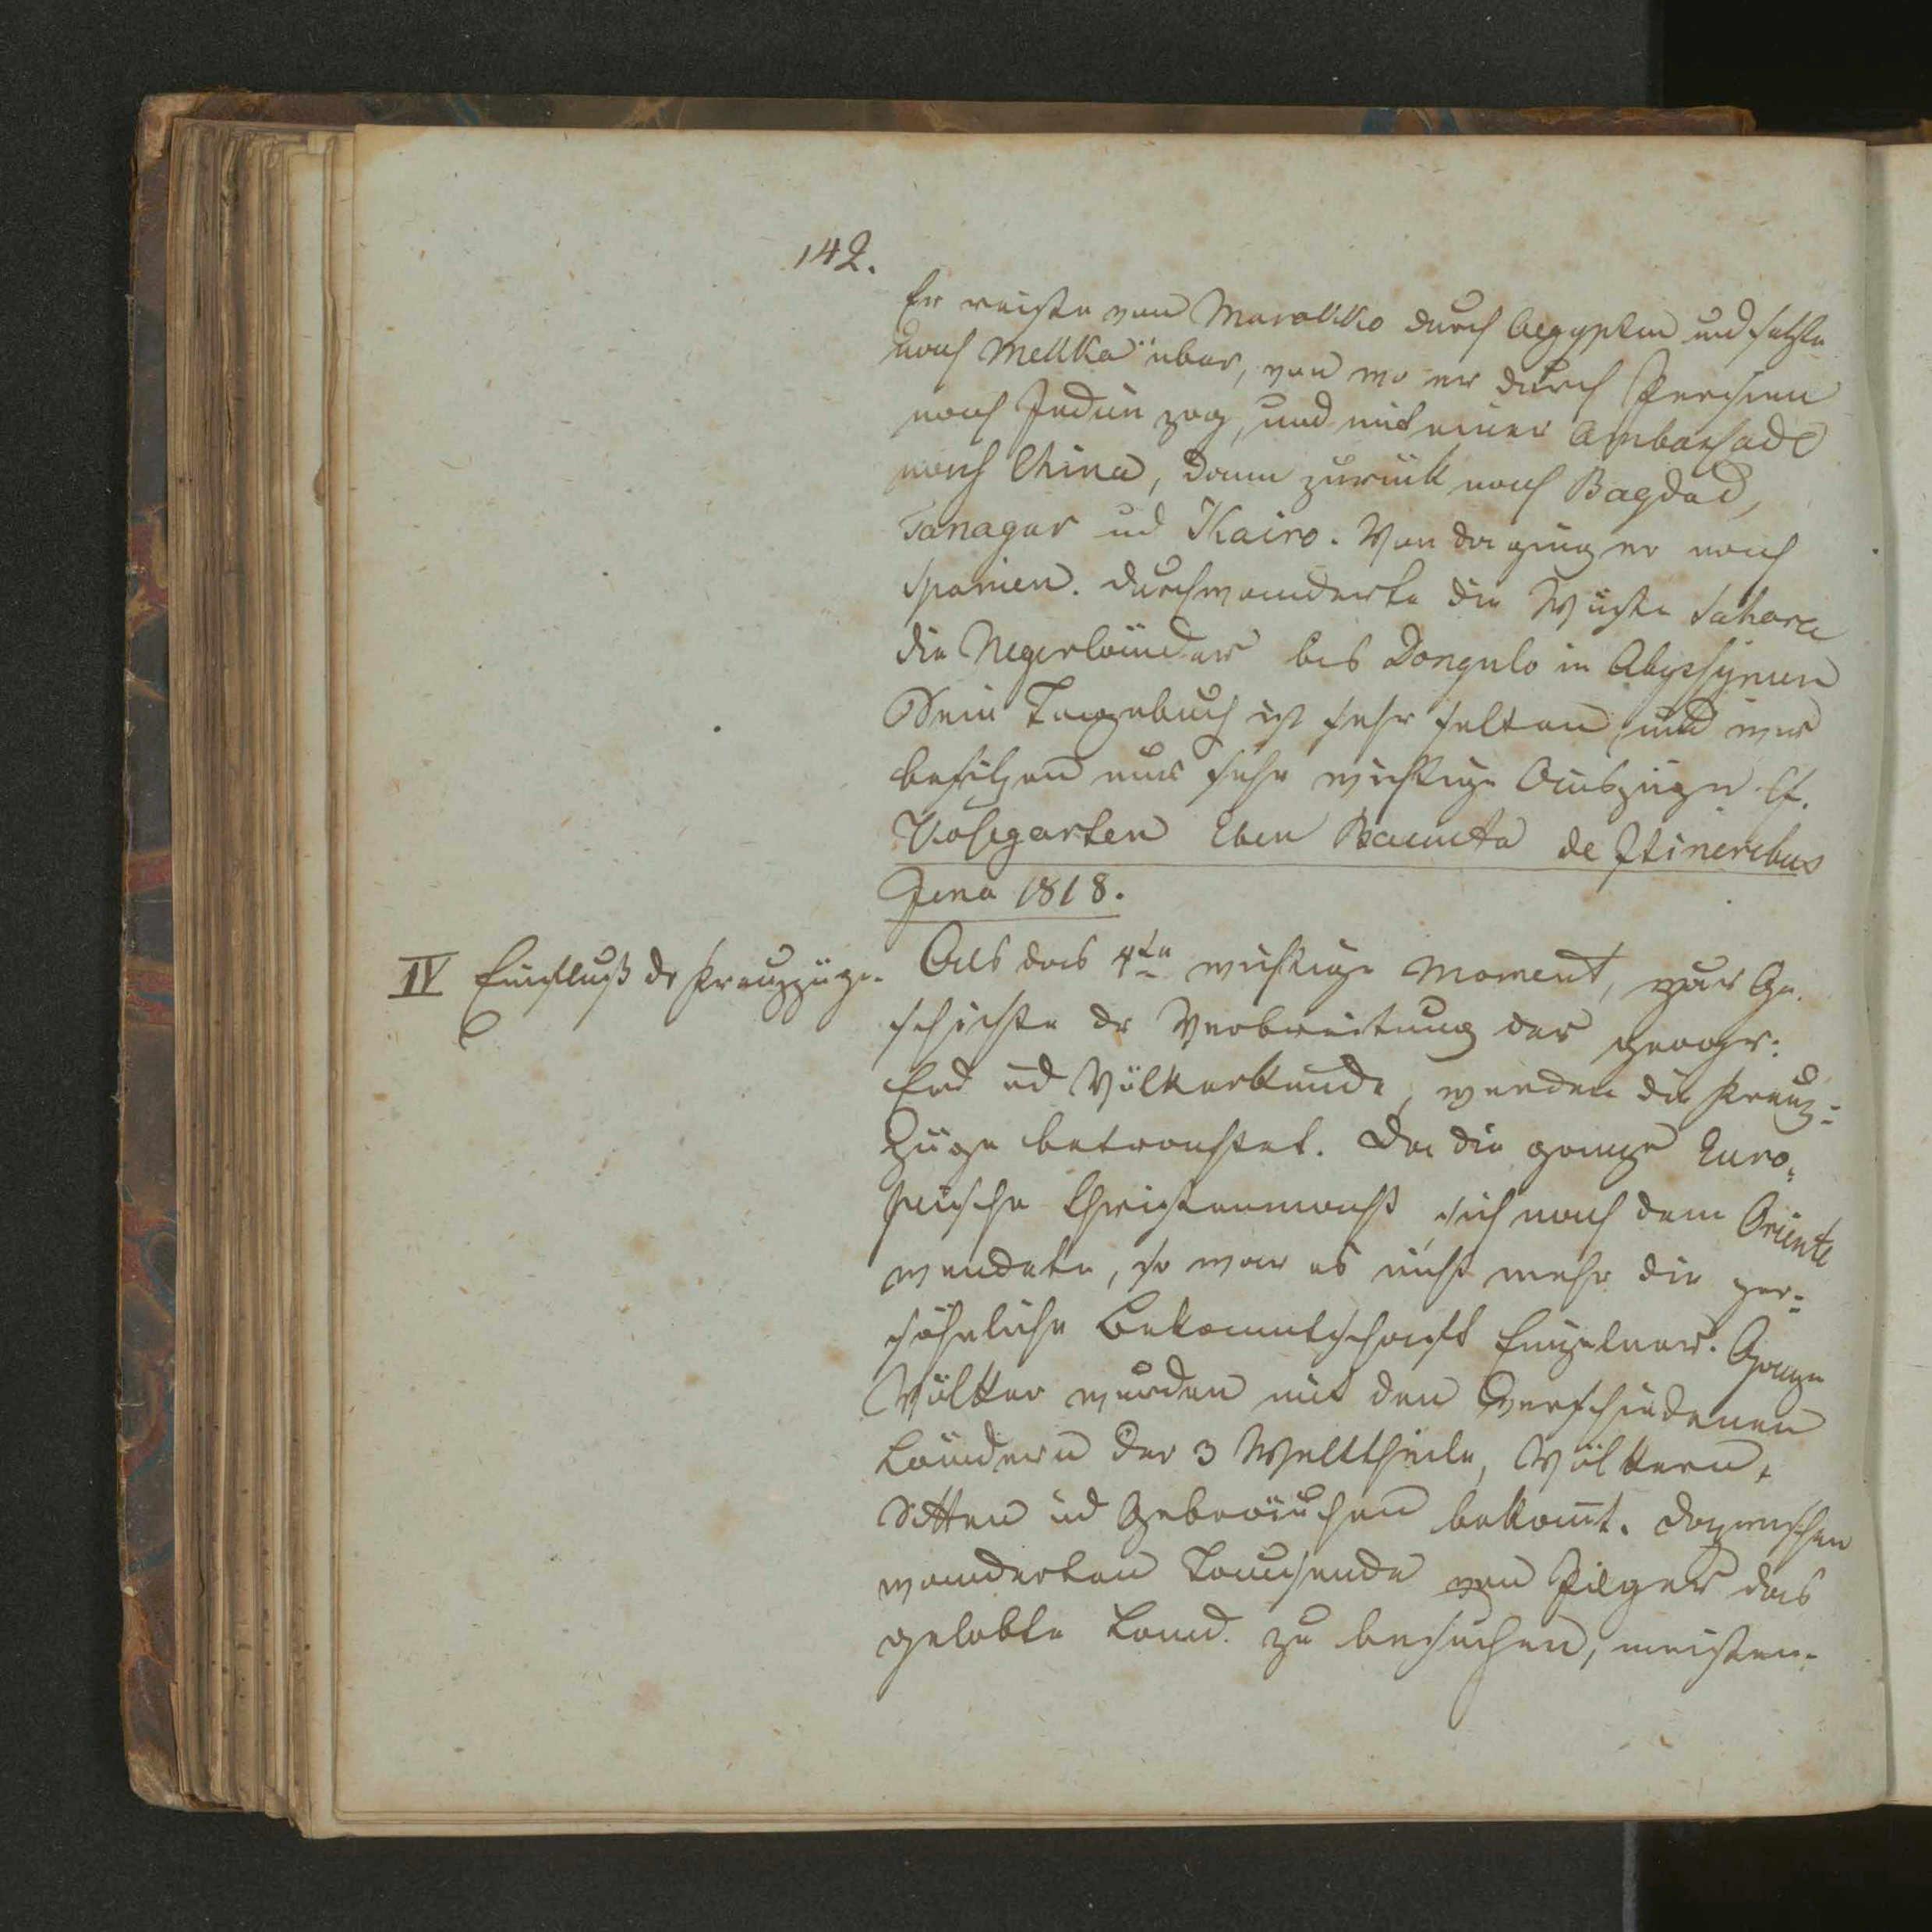 142.
Er reiste von Marokko durch Aegypten und setzte
nach Mekka über, von wo er durch Persien
nach Indien zog, und mit einer Ambassade
nach China, dann zurück nach Bagdad,
Tanagar ud Kairo. Von da ging er nach
Spanien. durchwanderte die Wüste Sahara
die Negerländer bis Dongulo in Abyssynien
Sein Tagebuch ist sehr selten, und wir
besitzen nur sehr wichtige Auszüge cf.
Kosegarten Eben Batuta de Itineribus
Jena 1818.
IV Einfluß dr Kreuzzüge.
Als das 4te wichtige Moment, zur Ge-
schichte dr Verbreitung der geogr:
Erd ud Völkerkunde, werden die Kreuz-
züge betrachtet. Da die ganze Euro-
päische Christenmacht sich nach dem Oriente
wendete, so war es nicht mehr die per-
söhnliche Bekanntschaft Einzelner. Ganze
Völker wurden mit den verschiedenen
Ländern der 3 Welttheile, Völkern,
Sitten ud Gebräuchen bekannt. Dazwischen
wanderten Tausende von Pilger das
gelobte Land. zu besuchen, meisten-